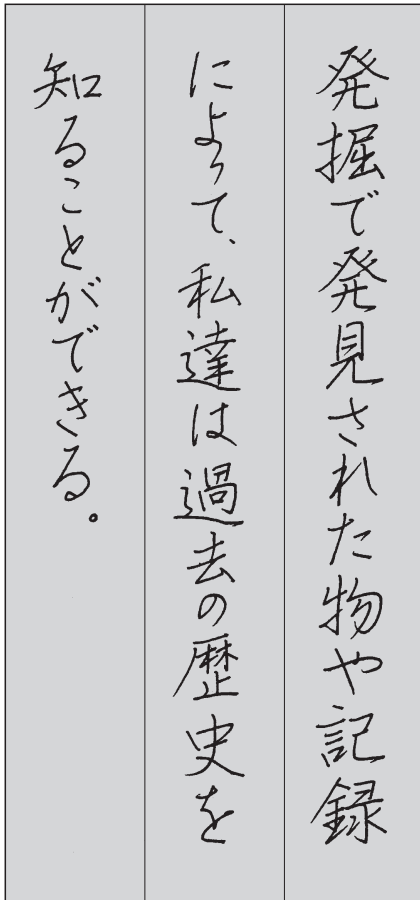 発掘で発見された物や記録
によって、私達は過去の歴史を
知ることができる。